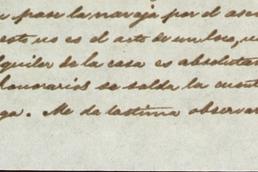 pase la navaja por el
esto no es el acto de un loco, u
quiler de la casa es absolutam
honorarios se salda la cuenta
ga. Me da lastima observar